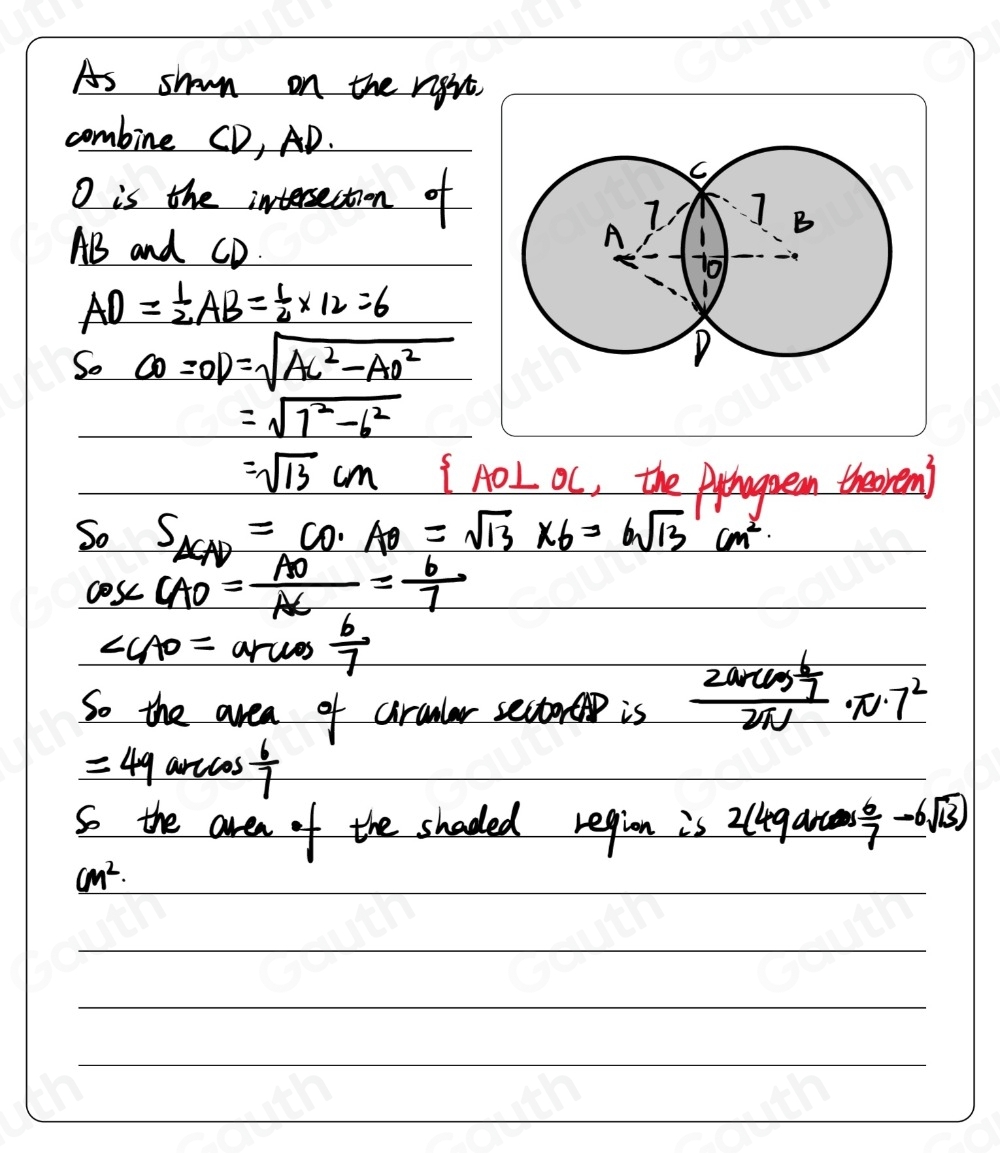 As shown on the right,
combine CD, AD.
O is the intersection of
AB and CD.
AO = 1/2 AB = 1/2 × 12 = 6
So CO = OD = √(AC² − AO²)
= √(7² − 6²)
= √13 cm { AO⊥OC, the Pythagorean theorem}
So S△CAD = CO · AO = √13 × 6 = 6√13 cm².
cos∠CAO = AO/AC = 6/7
∠CAO = arccos 6/7
So the area of circular sector CAD is (2arccos 6/7)/(2π) · π · 7²
= 49 arccos 6/7
So the area of the shaded region is 2(49 arccos 6/7 − 6√13)
cm².
C
7
7
A
B
O
D
Gauth